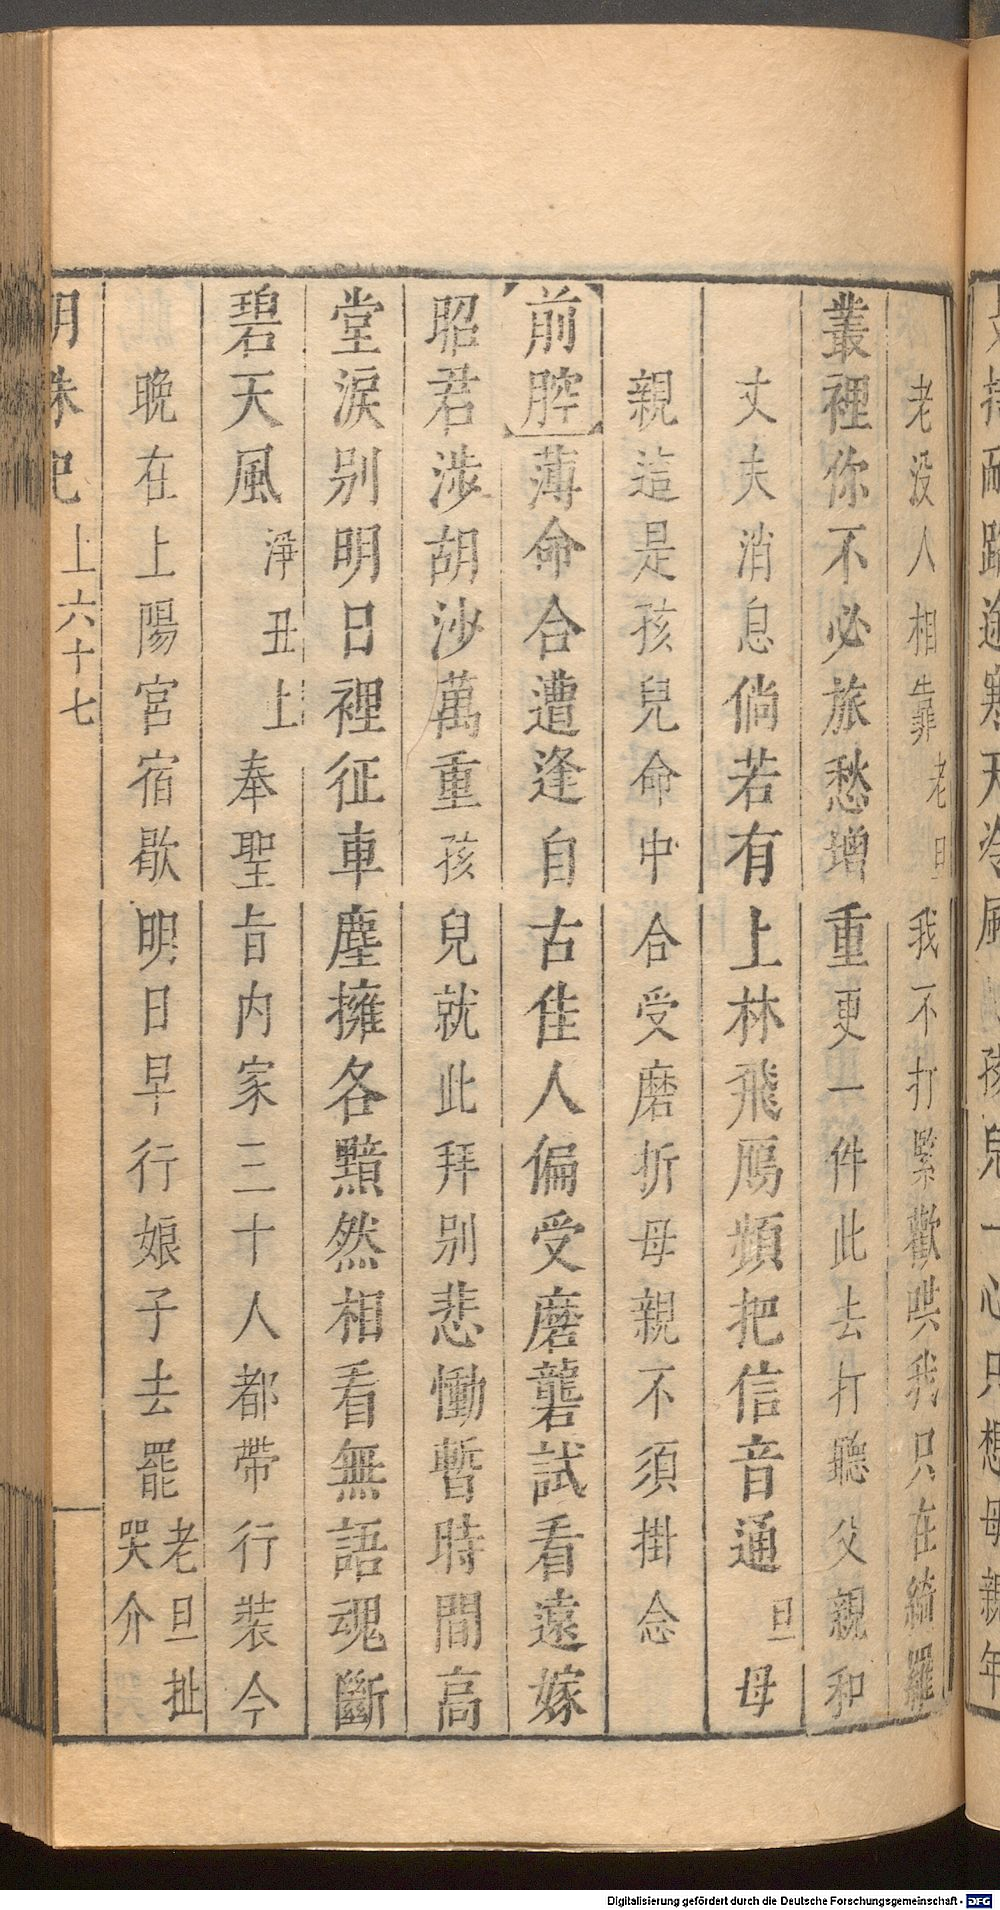 老没人相靠老旦我不打緊歡哄我只在綺羅
叢裡你不必旅愁増重更一件此去打聽父親和
丈夫消息倘若有上林飛鴈頻把信音通旦母
親這是孩兒命中合受磨折母親不須掛念
前腔薄命合遭逢自古佳人偏受磨礱試看遠嫁
昭君涉胡沙萬重孩兒就此拜别悲慟暫時間高
堂淚别明日裡征車塵擁各黯然相看無語魂斷
碧天風淨丑上奉聖旨内家三十人都帶行装今
晚在上陽宮宿歇明日早行娘子去罷老旦扯哭介
明珠記 上六十七
Digitalisierung gefördert durch die Deutsche Forschungsgemeinschaft - DFG